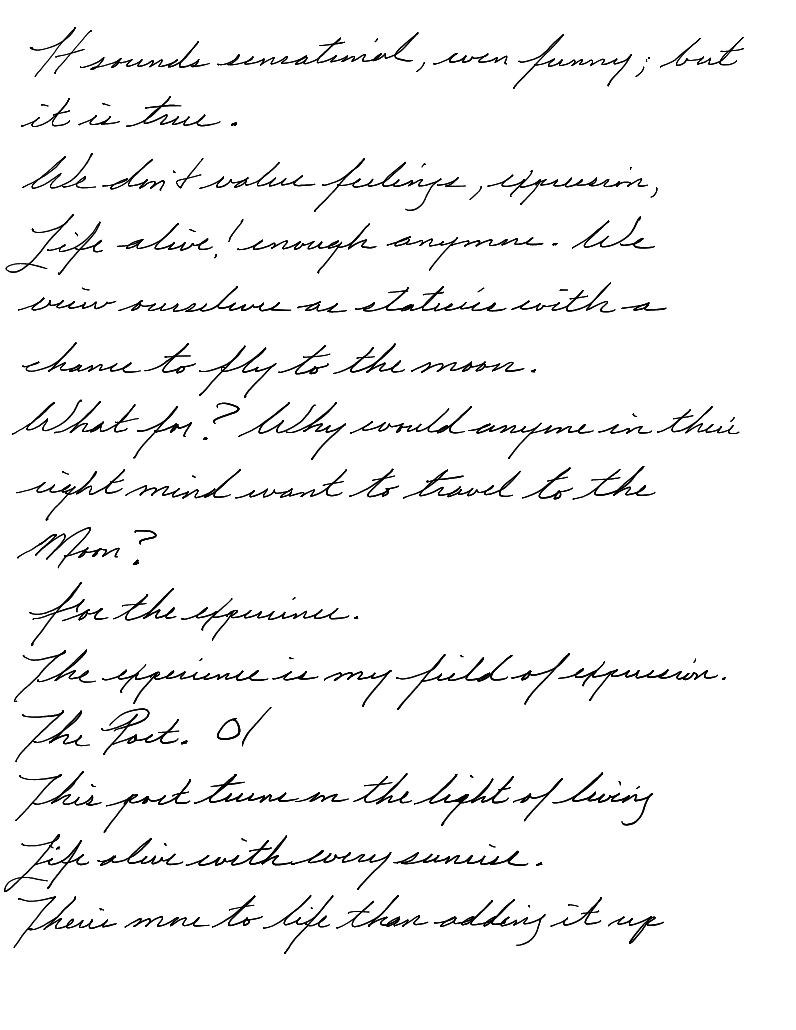 It sounds sensational, even funny; but
it is true.
We don't value feelings, expression,
Life alive! enough anymore. We
view ourselves as statues with a
chance to fly to the moon.
What for? Why would anyone in their
right mind want to travel to the
Moon?
For the experience.
The experience is my field of expression.
The Poet. 01
This poet turns on the light of living
Life alive with every sunrise.
There's more to life than adding it up